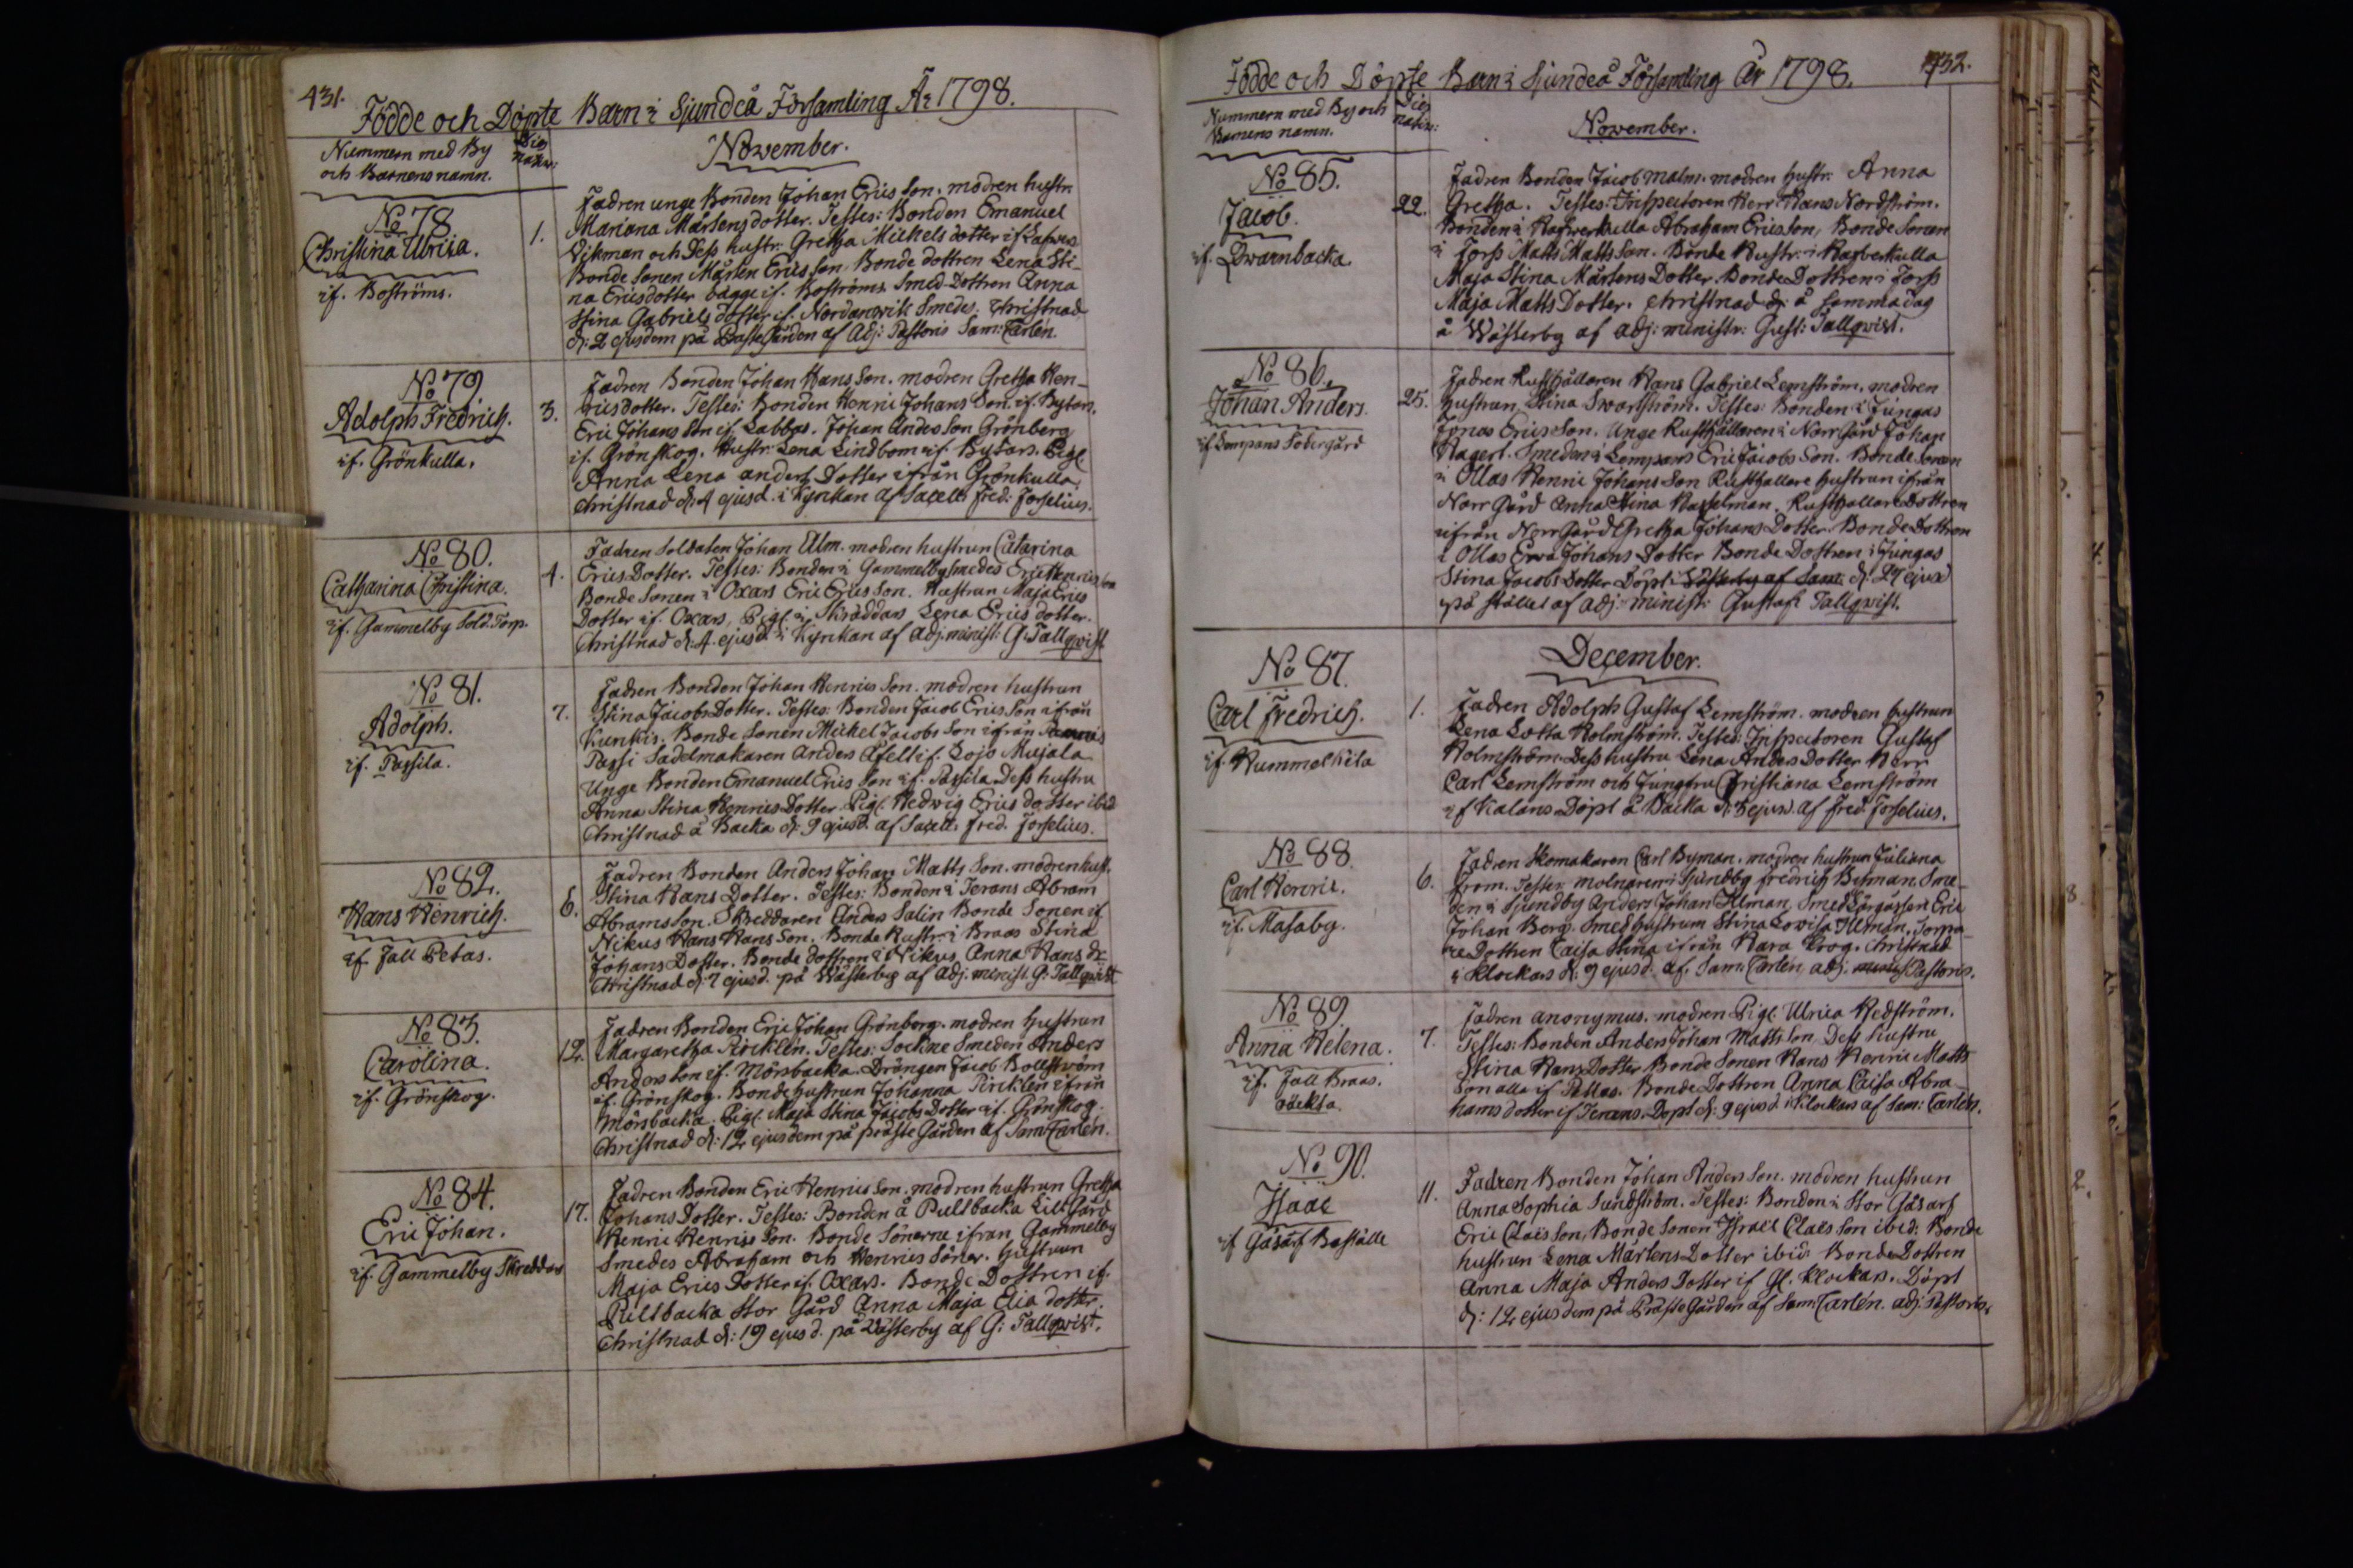 431.
Födde och Döpte Barn i Sjundeå Församling År 1798.
Nummern med By
och Barnens namn.
Die
natur:
November.
No 78
Christina Ulrica.
if. Boströms.
1.
Fadren unge Bonden Johan Erics Son. modren hustr.
Mariana Mårtensdotter. Testes: Bonden Emanuel
Vikman och Dess hustr. Gretha Michelsdotter if.
Bonde Sonen Mårten Erics son, Bonde dottren Lena Sti-
na Ericsdotter bägge if. Boströms. Smed Dottren Anna
Stina Gabriels dotter if. Nordanwik Smedes. Christnad
d: 2 ejusdem på Prästegården af Adj: Pastoris Sam: Carlén.
No 79.
Adolph Fredrich.
if. Grönkulla.
3.
Fadren Bonden Johan Hans Son. modren Gretha Hen-
ricsdotter. Testes: Bonden Henric Johans Son if. Bytars.
Eric Johans Son if. Labbas. Johan Anders Son Grönberg
if. Grönskog. Hustr. Lena Lindbom if. Bytars. Pigl
Anna Lena anders Dotter ifrån Grönkulla.
Christnad d: 4 ejusd. i Kyrckan af Sacell: Fred: Forselius.
No 80.
Catharina Christina.
if. Gammelby Sold. Torp.
4.
Fadren Soldaten Johan Alm. modren hustrun Catarina
Erics Dotter. Testes: Bonden i Gammelby Smedes Eric Henrics son
Bonde Sonen i Oxars Eric Erics Son. Hustrun Maja Erics
Dotter if. Oxars, Pigl. i Skräddars Lena Erics dotter.
Christnad d: 4. ejusd. i Kyrckan af Adj. minist: G: Tallqwist.
No 81.
Adolph.
if. Passila.
7.
Fadren Bonden Johan Henrics Son. modren hustrun
Stina Jacobs Dotter. Testes: Bonden Jacob Erics Son ifrån
Kunkis. Bonde Sonen Mickel Jacobs Son ifrån
Passi Sadelmakaren Anders Afelt if. Lojo Mujala
Unge Bonden Emanuel Erics Son if. Passila Dess hustru
Anna Stina Henrics Dotter Pigl. Hedwig Erics dotter ibid
Christnad å Backa d: 9 ejusd. af Sacell: Fred. Forselius.
No 82.
Hans Henrich.
if. Fall Petas.
6.
Fadren Bonden Anders Johan Matts Son. modren hust.
Stina Hans Dotter. Testes: Bonden i Terans Abram
Abrams Son. Skreddaren Anders Salin Bonde Sonen if.
Nikus Hans Hans Son. Bonde Hustr. i Braas Stina
Johans Dotter. Bonde dottren i Nikus Anna Hans dr
Christnad d: 7 ejusd. på Wästerby af Adj. minist. G: Tallqwist
No 83.
Carolina.
if. Grönskog.
12.
Fadren Bonden Eric Johan Grönberg. modren hustrun
Margaretha Pircklén. Testes: Sockne Smeden Anders
Anders Son if. Mörsbacka. Drängen Jacob Bollström
if. Grönskog. Bonde hustrun Johanna Pircklén ifrån
Mörsbacka. Pigl. Maja Stina Jacobs Dotter if. Grönskog.
Christnad d: 12 ejusdem på präste Gården af Sam: Carlén.
No 84.
Eric Johan.
if. Gammelby Skreddars
17.
Fadren Bonden Eric Henrics Son. modren hustrun Gretha
Johans Dotter. Testes: Bonden å Pultbacka Lill Gård
Henric Henrics Son. Bonde Sönerne ifrån Gammelby
Smedes Abraham och Henrics Söner. hustrun
Maja Erics Dotter if. Oxars. Bonde Dottren if.
Pultbacka Stor Gård Anna Maja Elia dotter.
Christnad d: 19 ejusd. på Wästerby af G: Tallqwist.
432.
Födde och Döpte Barn i Sjundeå Församling År 1798.
Nummern med By och
Barnens namn.
Die
natur:
November.
No 85.
Jacob.
if. Qwarnbacka
22.
Fadren Bonden Jacob Malm. modren hustr. Anna
Gretha. Testes: Inspectoren Herr Hans Nordström.
Bonden i Harwerkulla Abraham Ericsson, Bonde Sonen
i Forss Matts Matts Son. Bonde Hustr. i Harverkulla
Maja Stina Mårtens Dotter. Bonde Dottren i Forss
Maja Matts Dotter. Christnad d: å samma dag
å Wästerby af adj: ministr: Gust: Tallqwist.
No 86.
Johan Anders
if. Lempans Södergård
25.
Fadren Rusthållaren Hans Gabriel Lemström. modren
Hustrun Stina Swartström. Testes: Bonden i Jungas
Jonas Ericsson. Unge Rusthållaren i Norrgård Johan
Hagert. Smeden i Lempans Eric Jacobs Son. Bonde Sonen
i Ollas Henric Johans Son Rusthållare hustrun ifrån
Norrgård Anna Stina Hasselman. Rusthållare Dottren
ifrån Norrgård Gretha Johans Dotter. Bonde Dottren
i Ollas Ewa Johans Dotter Bonde Dottren i Jungas
Stina Jacobs Dotter Döpt i Wästerby af Sam: d: 27 ejusd
på stället af adj: minist: Gustaf: Tallqwist.
December.
No 87.
Carl Fredrich.
if. Hummelkila
1.
Fadren Adolph Gustaf Lemström. modren hustrun
Lena Lotta Holmström. Testes: Inspectoren Gustaf
Holmström. Dess hustru Lena Anders Dotter Herr
Carl Lemström och Jungfru Christiana Lemström
if Kalans. Döpt å Backa d: ejusd. af Fred: Forselius.
No 88.
Carl Henric.
if. Masaby.
6.
Fadren Skomakaren Carl Byman. modren hustrun Juliana
From. Testes: molnaren i Sjundby Fredrich Byman. Sme-
den i Sjundby Anders Johan Illman, Smed Lärgossen Eric
Johan Berg. Smed hustrun Stina Lowisa Illman. Torpa-
re Dottren Caisa Stina ifrån Hara Krog. Christnad
i Klockars d: 9 ejusd. af. Sam: Carlén, adj: Pastoris.
No 89
Anna Helena.
if. Fall Braas.
oäckta.
7.
Fadren anonymus. modren Pigl. Ulrica Hedström.
Testes: Bonden Anders Johan Matts Son Dess hustru
Stina Hans Dotter Bonde Sonen Hans Henric Matts
Son alla if Pettas. Bonde Dottren Anna Caisa Abra-
hams dotter if Terans. Döpt d: 9 ejusd i Klockars af Sam: Carlén.
No 90.
Isaac
if Gåsarf Boställe
11.
Fadren Bonden Johan Anders Son. modren hustrun
Anna Sophia Sundström. Testes: Bonden i Stor Gåsarf
Eric Claes Son, Bonde Sonen Israel Claes Son ibid: Bonde
hustrun Lena Mårtens Dotter ibid: Bonde Dottren
Anna Maja Anders Dotter if Gl. Klockars. Döpt
d: 12 ejusdem på Präste Gården af Sam: Carlén. adj: Pastoris.